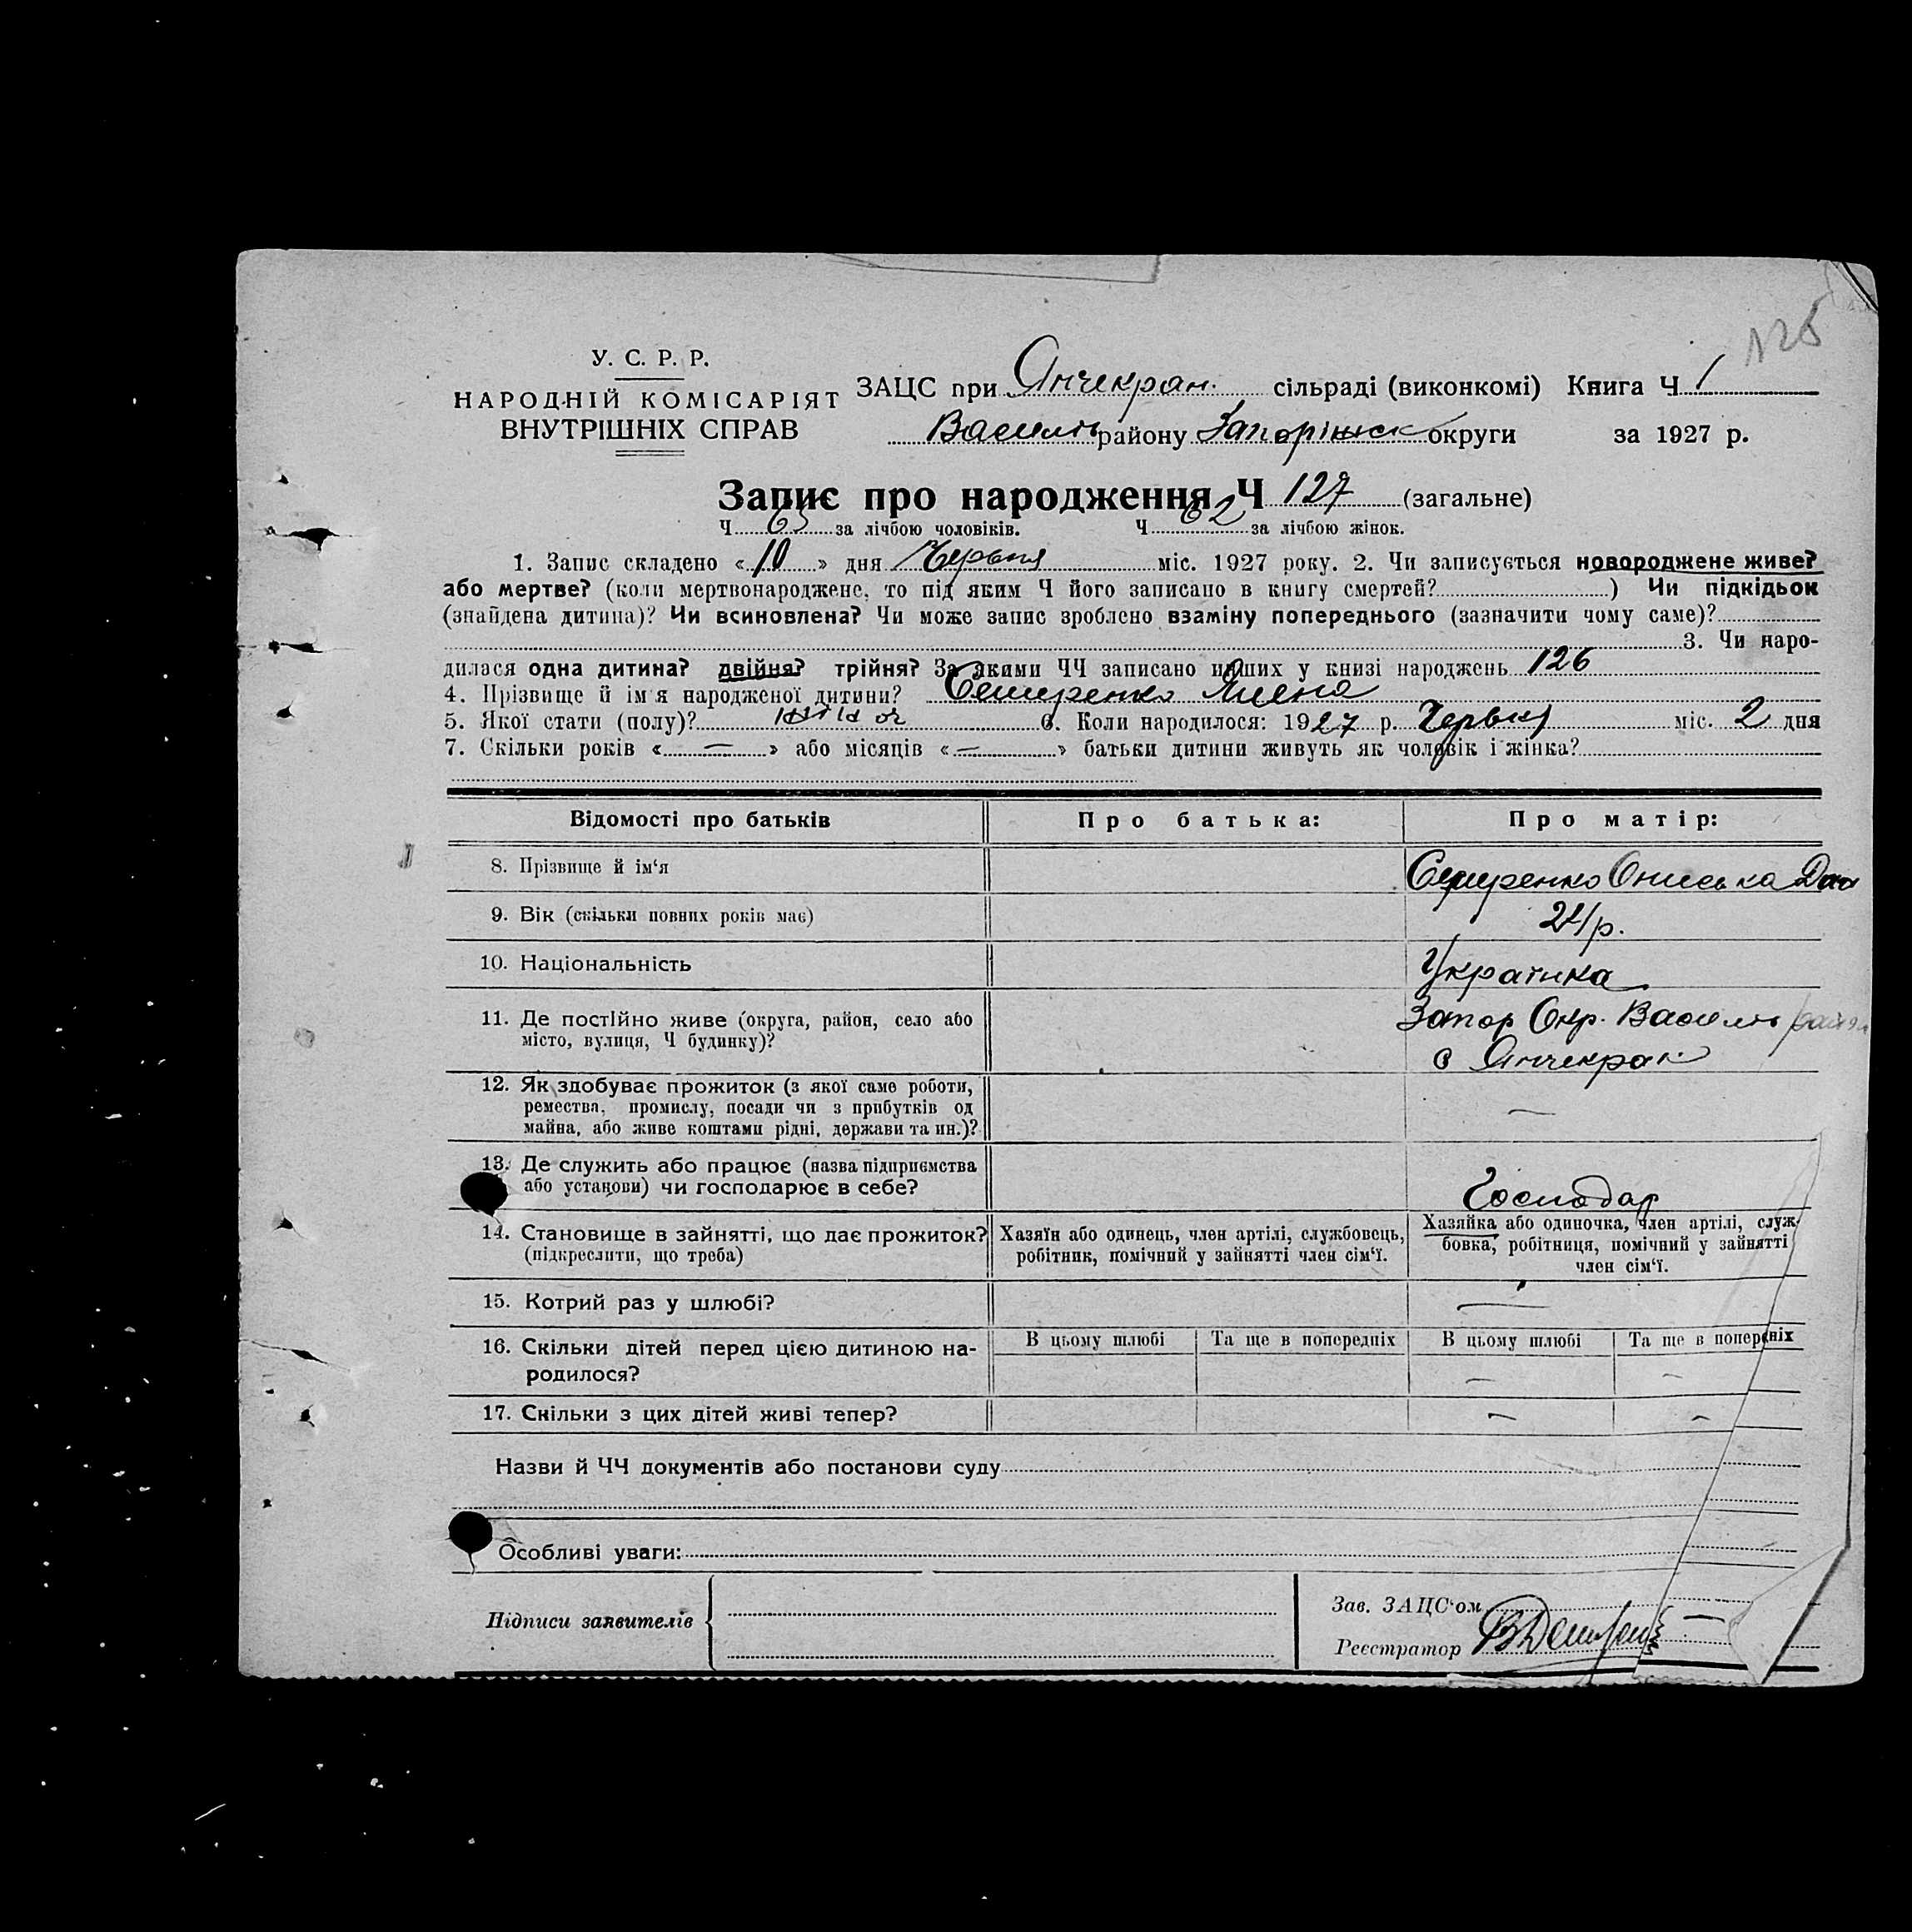 125
У. С. Р. Р.
НАРОДНІЙ КОМІСАРІЯТ
ВНУТРІШНІХ СПРАВ
ЗАЦС при Янчекран. сільраді (виконкомі) Книга Ч 1
Василь району Запоріжськ округи за 1927 р.
Запис про народження Ч 127 (загальне)
Ч 63 за лічбою чоловіків. Ч 62 за лічбою жінок.
1. Запис складено « 10 » дня Червня міс. 1927 року. 2. Чи записується новороджене живе?
або мертве? (коли мертвонароджене, то під яким Ч його записано в книгу смертей? ) Чи підкідьок
(знайдена дитина)? Чи всиновлена? Чи може запис зроблено взаміну попереднього (зазначити чому саме)?
3. Чи наро-
дилася одна дитина? двійня? трійня? За якими ЧЧ записано инших у книзі народжень 126
4. Прізвище й ім'я народженої дитини?
5. Якої стати (полу)? 6. Коли народилося: 1927 р. Червня міс. 2 дня
7. Скільки років « — » або місяців « — » батьки дитини живуть як чоловік і жінка?
Відомості про батьків
Про батька:
Про матір:
8. Прізвище й ім'я
Ониська
9. Вік (скільки повних років має)
24 р.
10. Національність
Українка
11. Де постійно живе (округа, район, село або
місто, вулиця, Ч будинку)?
Запор Окр. Василь район
с Янчекрак
12. Як здобуває прожиток (з якої саме роботи,
ремества, промислу, посади чи з прибутків од
майна, або живе коштами рідні, держави та ин.)?
—
13. Де служить або працює (назва підприємства
або установи) чи господарює в себе?
Господар
14. Становище в зайнятті, що дає прожиток?
(підкреслити, що треба)
Хазяїн або одинець, член артілі, службовець,
робітник, помічний у зайнятті член сім'ї.
Хазяйка або одиночка, член артілі, служ-
бовка, робітниця, помічний у зайнятті
член сім'ї.
15. Котрий раз у шлюбі?
—
16. Скільки дітей перед цією дитиною на-
родилося?
В цьому шлюбі
Та ще в попередніх
В цьому шлюбі
Та ще в попередніх
— —
17. Скільки з цих дітей живі тепер?
— —
Назви й ЧЧ документів або постанови суду
Особливі уваги:
Підписи заявителів
Зав. ЗАЦС'ом
Реєстратор